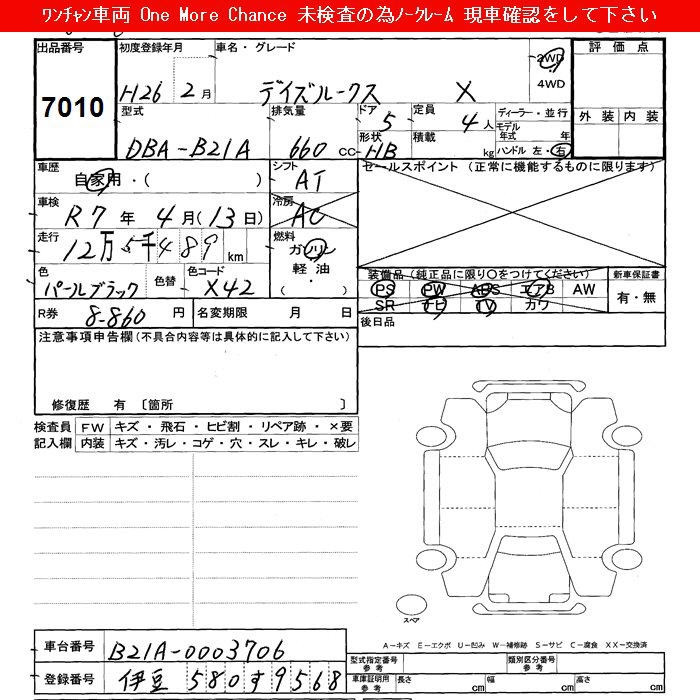 ﾜﾝﾁｬﾝ車両 One More Chance 未検査の為ﾉｰｸﾚｰﾑ 現車確認をして下さい
出品番号 初度登録年月 車名・グレード 評価点
7010 H26 2月 デイズルークス X 2WD 4WD
型式 排気量 ドア 定員 ディーラー・並行 外装 内装
DBA-B21A 660 cc 5 4人 モデル年式 年
形状 積載 ハンドル 左・右
HB kg
車歴 シフト セールスポイント (正常に機能するものに限ります)
自家用・( ) AT
車検 冷房
R7年 4月(13日) AC
走行 燃料
12万5千489km ガソリン
軽油
( ・ )
色 色替 色コード 装備品 (純正品に限り○をつけてください) 新車保証書
パールブラック X42 PS PW ABS エアB AW 有・無
SR ナビ TV カワ
R券 8-860円 名変期限 月 日 後日品
注意事項申告欄(不具合内容等は具体的に記入して下さい)
修復歴 有 〔箇所 〕
検査員 FW キズ・飛石・ヒビ割・リペア跡・×要
記入欄 内装 キズ・汚レ・コゲ・穴・スレ・キレ・破レ
スペア
A－キズ E－エクボ U－凹み W－補修跡 S－サビ C－腐食 XX－交換済
車台番号 B21A-0003706 型式指定番号 参考 類別区分番号 参考
登録番号 伊豆 580 す 9568 車庫証明用 参考 長さ cm 幅 cm 高さ cm